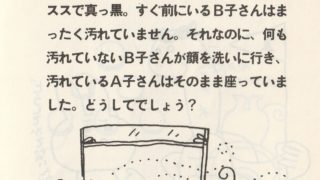 ススで真っ黒。すぐ前にいるB子さんはま
ったく汚れていません。それなのに、何も
汚れていないB子さんが顔を洗いに行き、
汚れているA子さんはそのまま座っていま
した。どうしてでしょう？